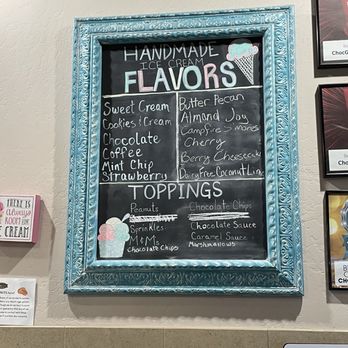 HANDMADE
ICE CREAM
FLAVORS
Sweet Cream
Cookies & Cream
Chocolate
Coffee
Mint Chip
Strawberry
Butter Pecan
Almond Joy
Campfire S'mores
Cherry
Berry Cheesecake
Dairy Free Coconut Lime
TOPPINGS
Peanuts
Sprinkles
M&M
Chocolate Chips
Chocolate Chips
Chocolate Sauce
Caramel Sauce
Marshmallows
THERE IS
always
ROOM FOR
ICE CREAM